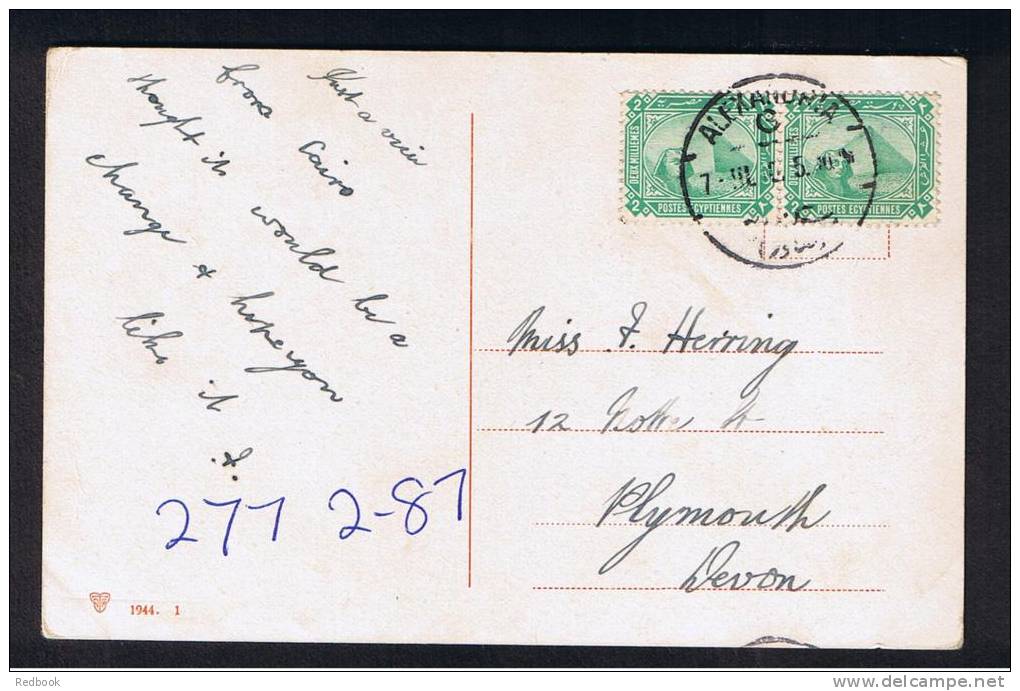 Just a view
from Cairo
thought it would be a
change & hope you
like it &.
277 2-87
1944. 1
2 2
DEUX MILLIEMES
2 2
POSTES EGYPTIENNES
2
DEUX MILLIEMES
2
POSTES EGYPTIENNES
ALEXANDRIA
C
Miss F. Herring
12 St
Plymouth
Devon
Redbook
www.delcampe.net